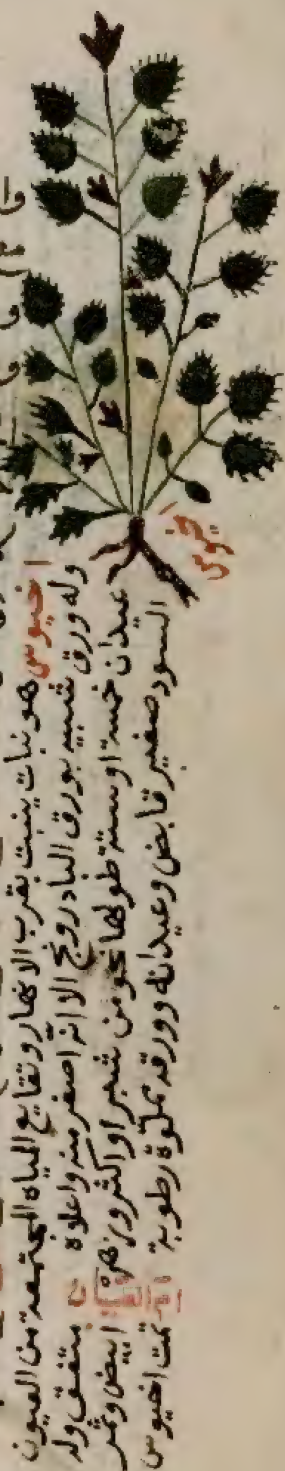 اخيوس
اخيوس هو نبات ينبت بقرب الانهار ونقايع المياه المجتمعة من العيون
وله ورق شبيه بورق البادرونج الا انه اصغر منه واعلاه وله
عيدان خمسة او ستة طولها نحو من شبر او اكثر وزهره ابيض وثمر
السود صغير قابض وعيدانه وورقه مملوة رطوبة تمت اخيوس